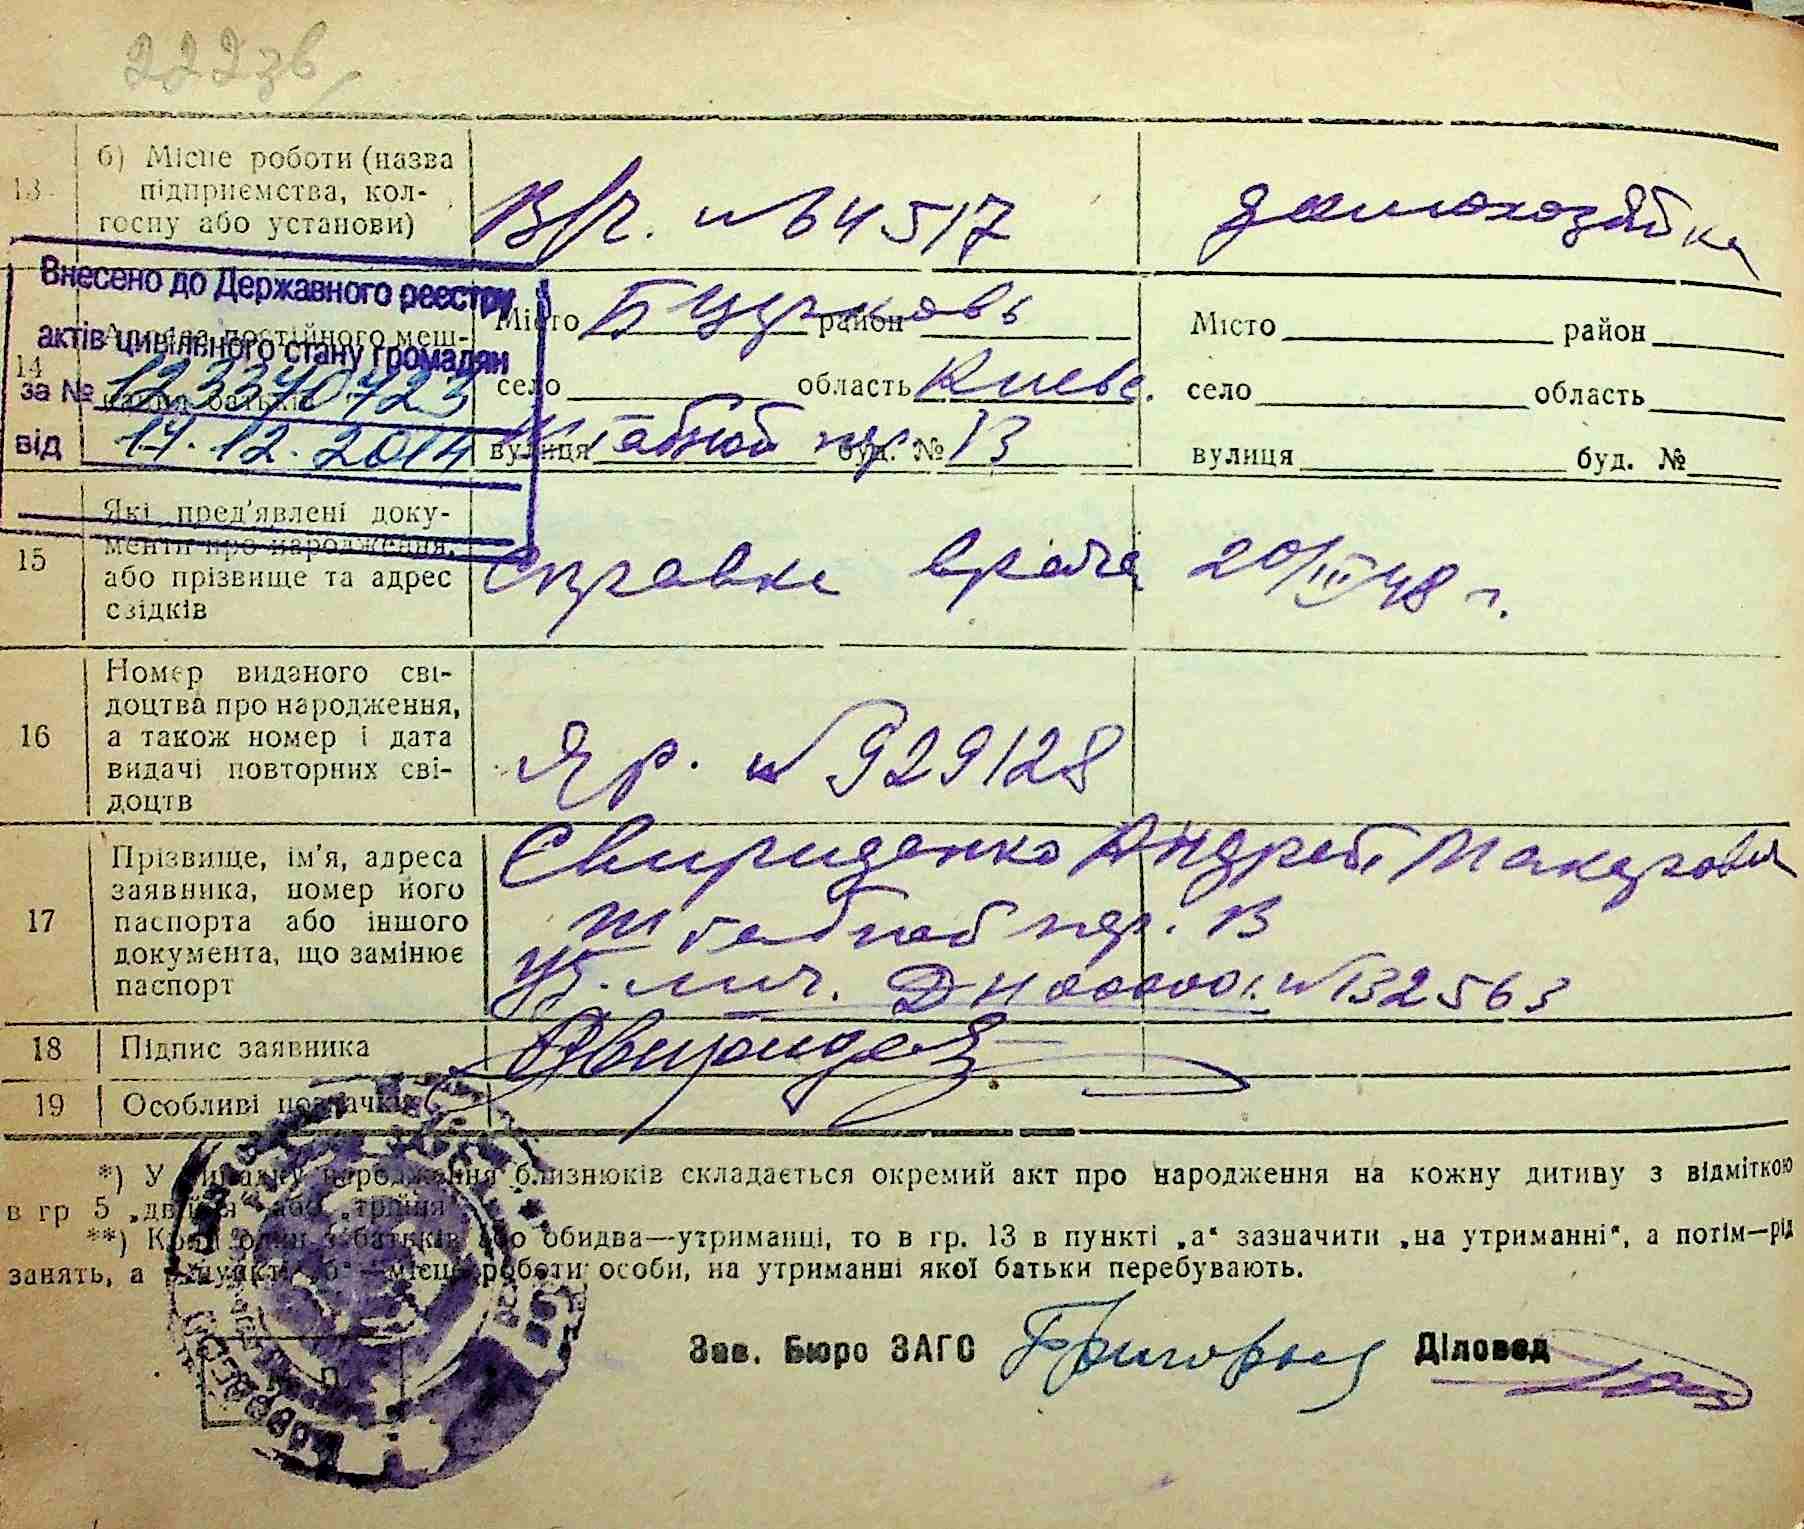 222зв
13 б) Місце роботи (назва
підприємства, кол-
госпу або установи)
В/ч. № 64517 домохозяйка
Внесено до Державного реєстру
актів цивільного стану громадян
за № 1233
від 14.12.2014
14 Адреса постійного меш-
Місто Б Церковь район
село область Киевс.
вулиця Штабной пер. буд. № 13
Місто район
село область
вулиця буд. №
15 Які пред'явлені доку-
менти про народження,
або прізвище та адрес
свідків
Справка врача 20/III 48 г.
16 Номер виданого сві-
доцтва про народження,
а також номер і дата
видачі повторних сві-
доцтв
Яр. № 929128
17 Прізвище, ім'я, адреса
заявника, номер його
паспорта або іншого
документа, що замінює
паспорт
Свириденко Андрей Макарович
Штабной пер. 13
Уд. лич. № 132563
18 Підпис заявника
19 Особливі позначки
*) У випадку народження близнюків складається окремий акт про народження на кожну дитину з відміткою
в гр 5 „двійня“ або „трійня“.
**) Коли один з батьків або обидва—утриманці, то в гр. 13 в пункті „а“ зазначити „на утриманні“, а потім—рід
занять, а в пункті „б“—місце роботи особи, на утриманні якої батьки перебувають.
Зав. Бюро ЗАГС Діловод